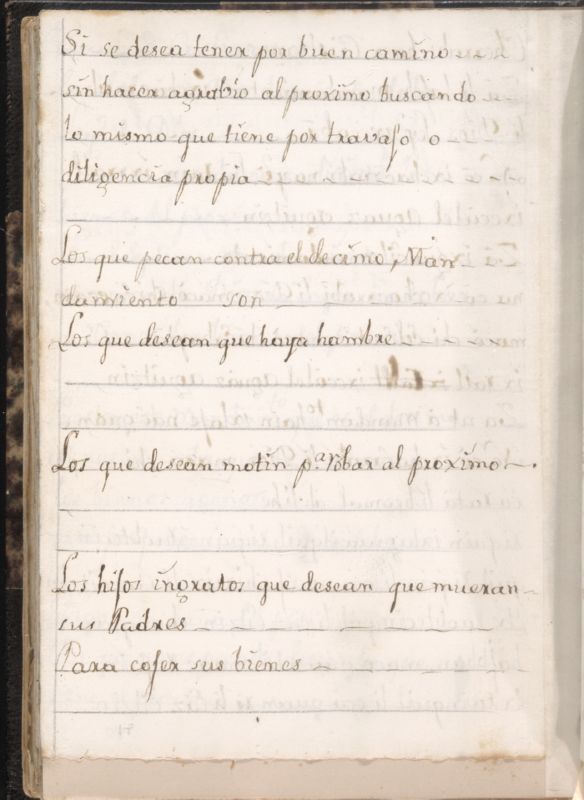 Si se desea tener por buen camino
sin hacer agrabio al proximo buscando
lo mismo que tiene por travajo o
diligencia propia
Los que pecan contra el decimo, Man-
damiento son
Los que desean que haya hambre
Los que desean motin p.ª robar al proximo.
Los hijos ingratos que desean que mueran
sus Padres
Para cojer sus bienes